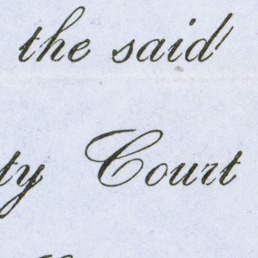 the said
ty Court